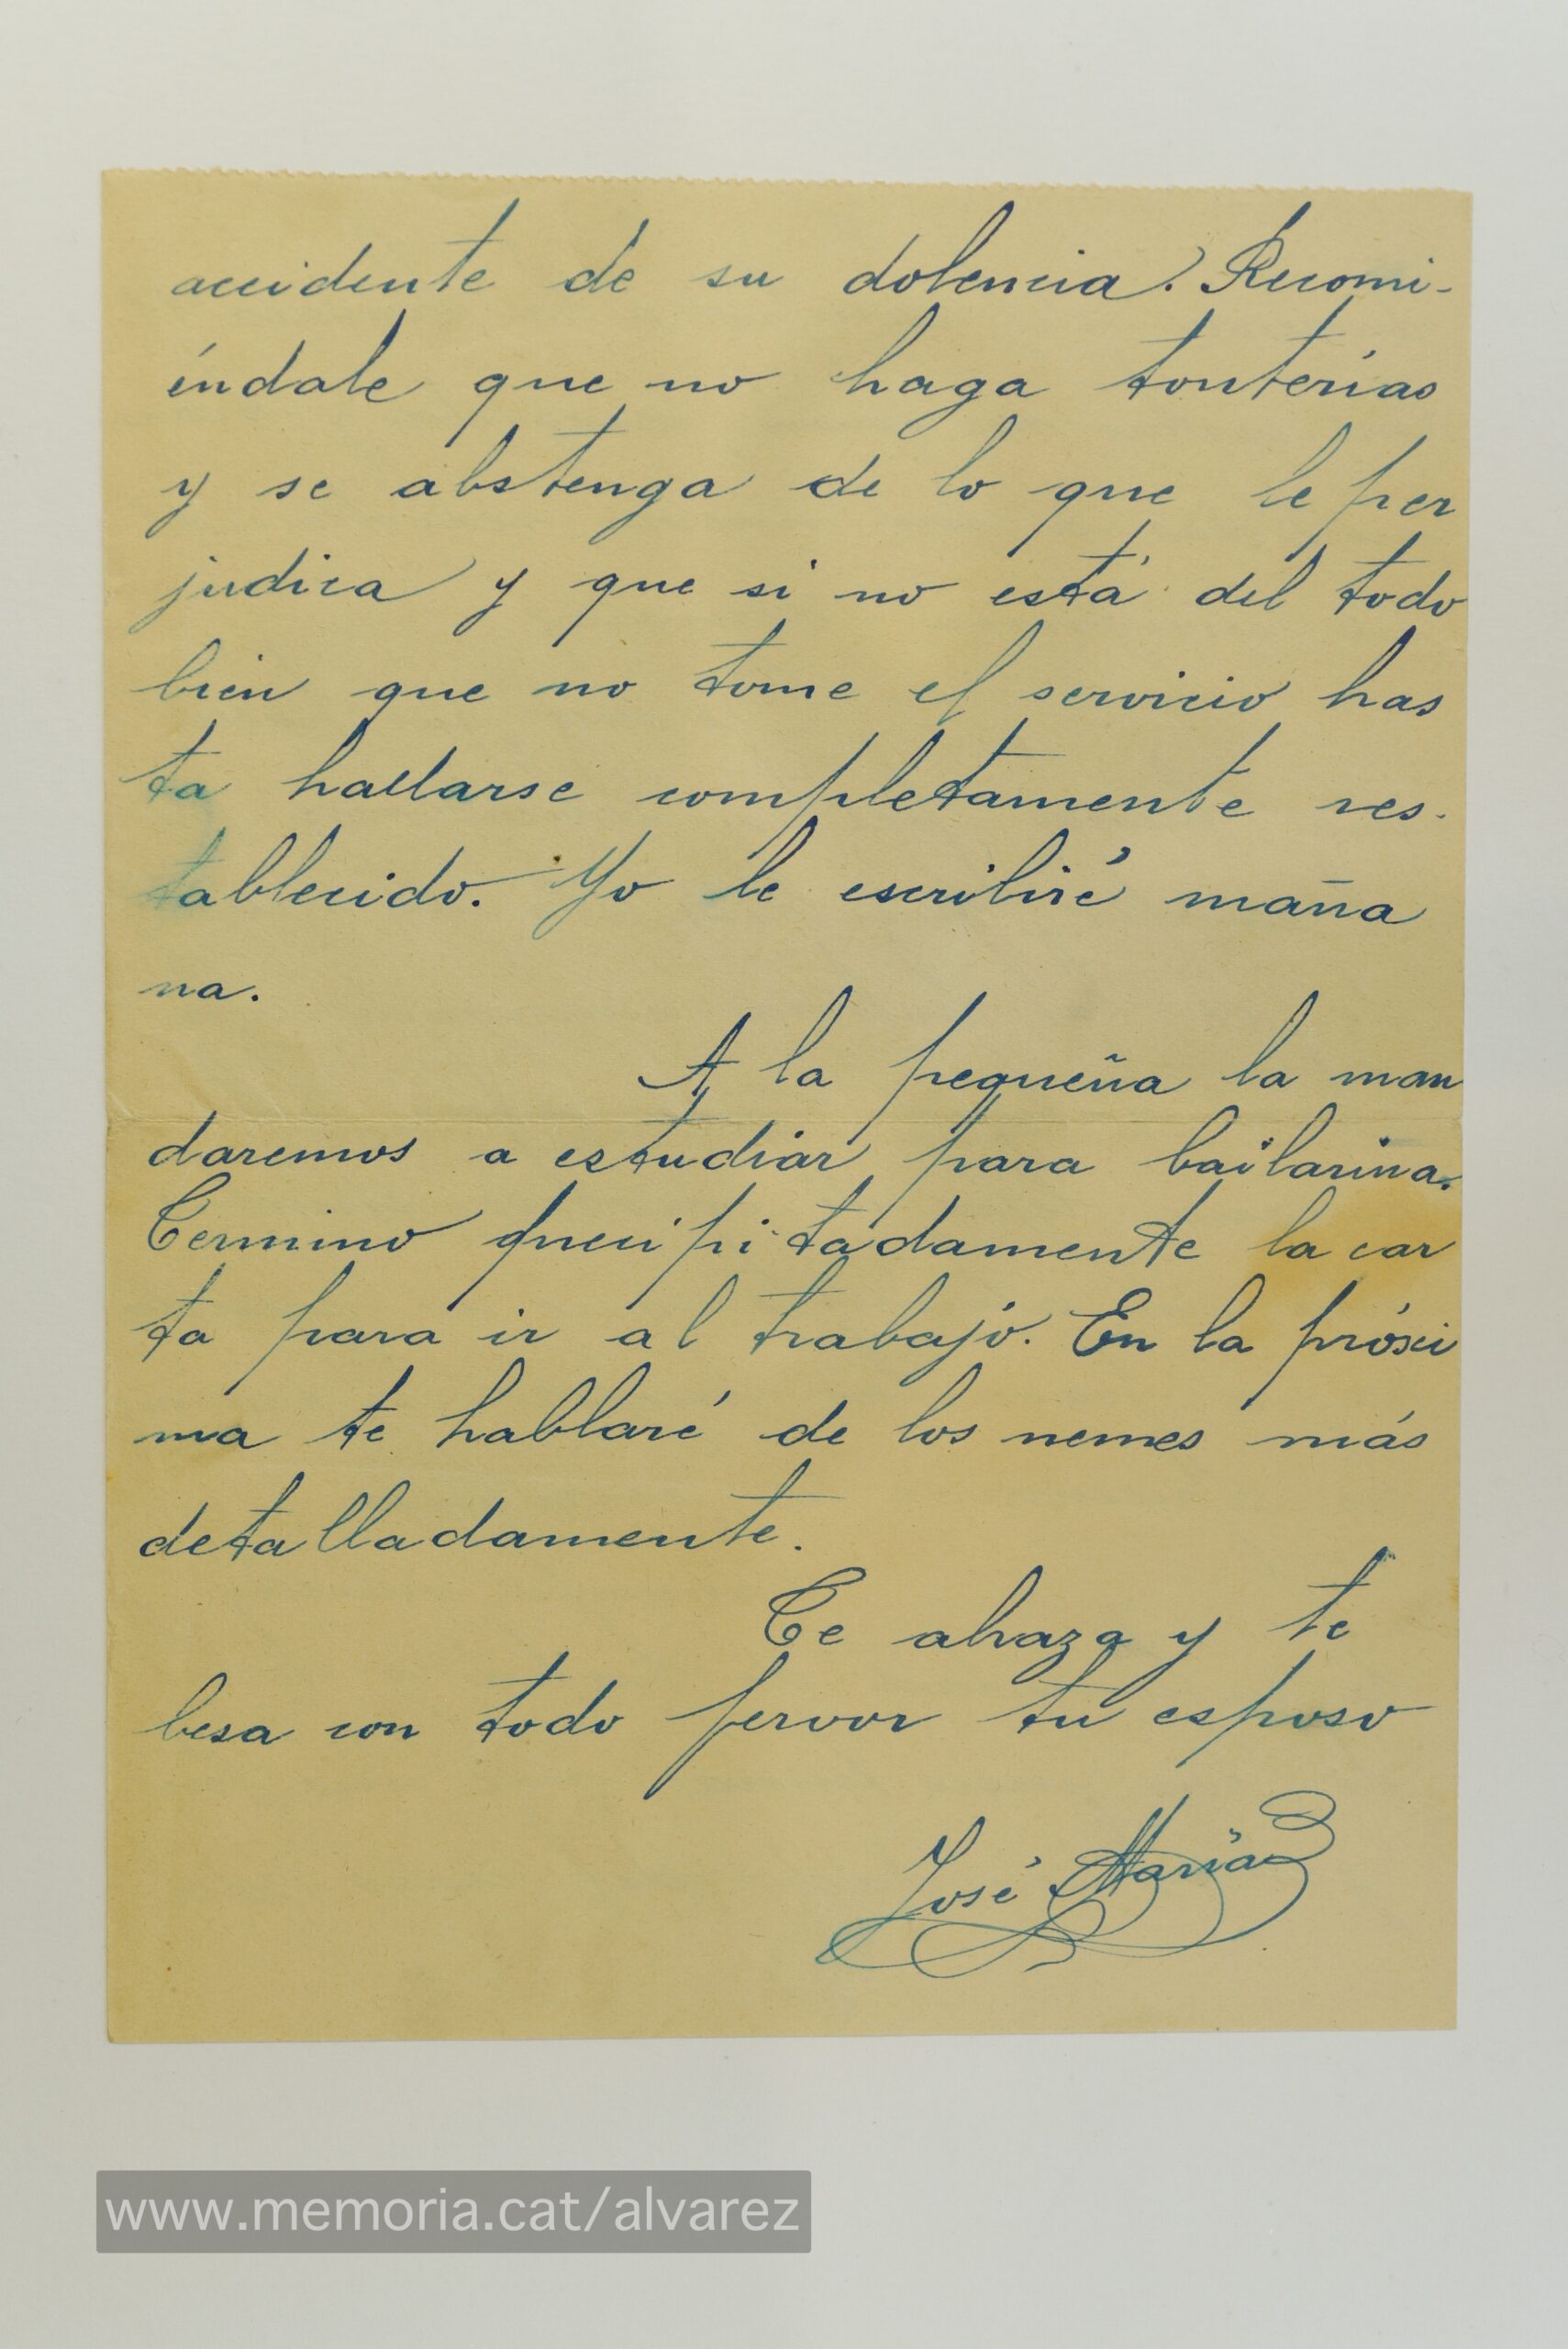 accidente de su dolencia. Recomi-
éndale que no haga tonterías
y se abstenga de lo que le per
judica y que si no está del todo
bien que no tome el servicio has
ta hallarse completamente res-
tablecido. Yo le escribiré maña
na.
A la pequeña la man
daremos a estudiar para bailarina.
Termino precipitadamente la car
ta para ir al trabajo. En la próxi
ma te hablaré de los nenes más
detalladamente.
Te abraza y te
besa con todo fervor tu esposo
José María
www.memoria.cat/alvarez